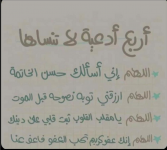 أربع أدعية لا تنساها
اللهم إني أسألك حسن الخاتمة
اللهم ارزقني توبة نصوحة قبل الموت
اللهم يا مقلب القلوب ثبت قلبي على دينك
اللهم إنك عفو كريم تحب العفو فاعف عنا